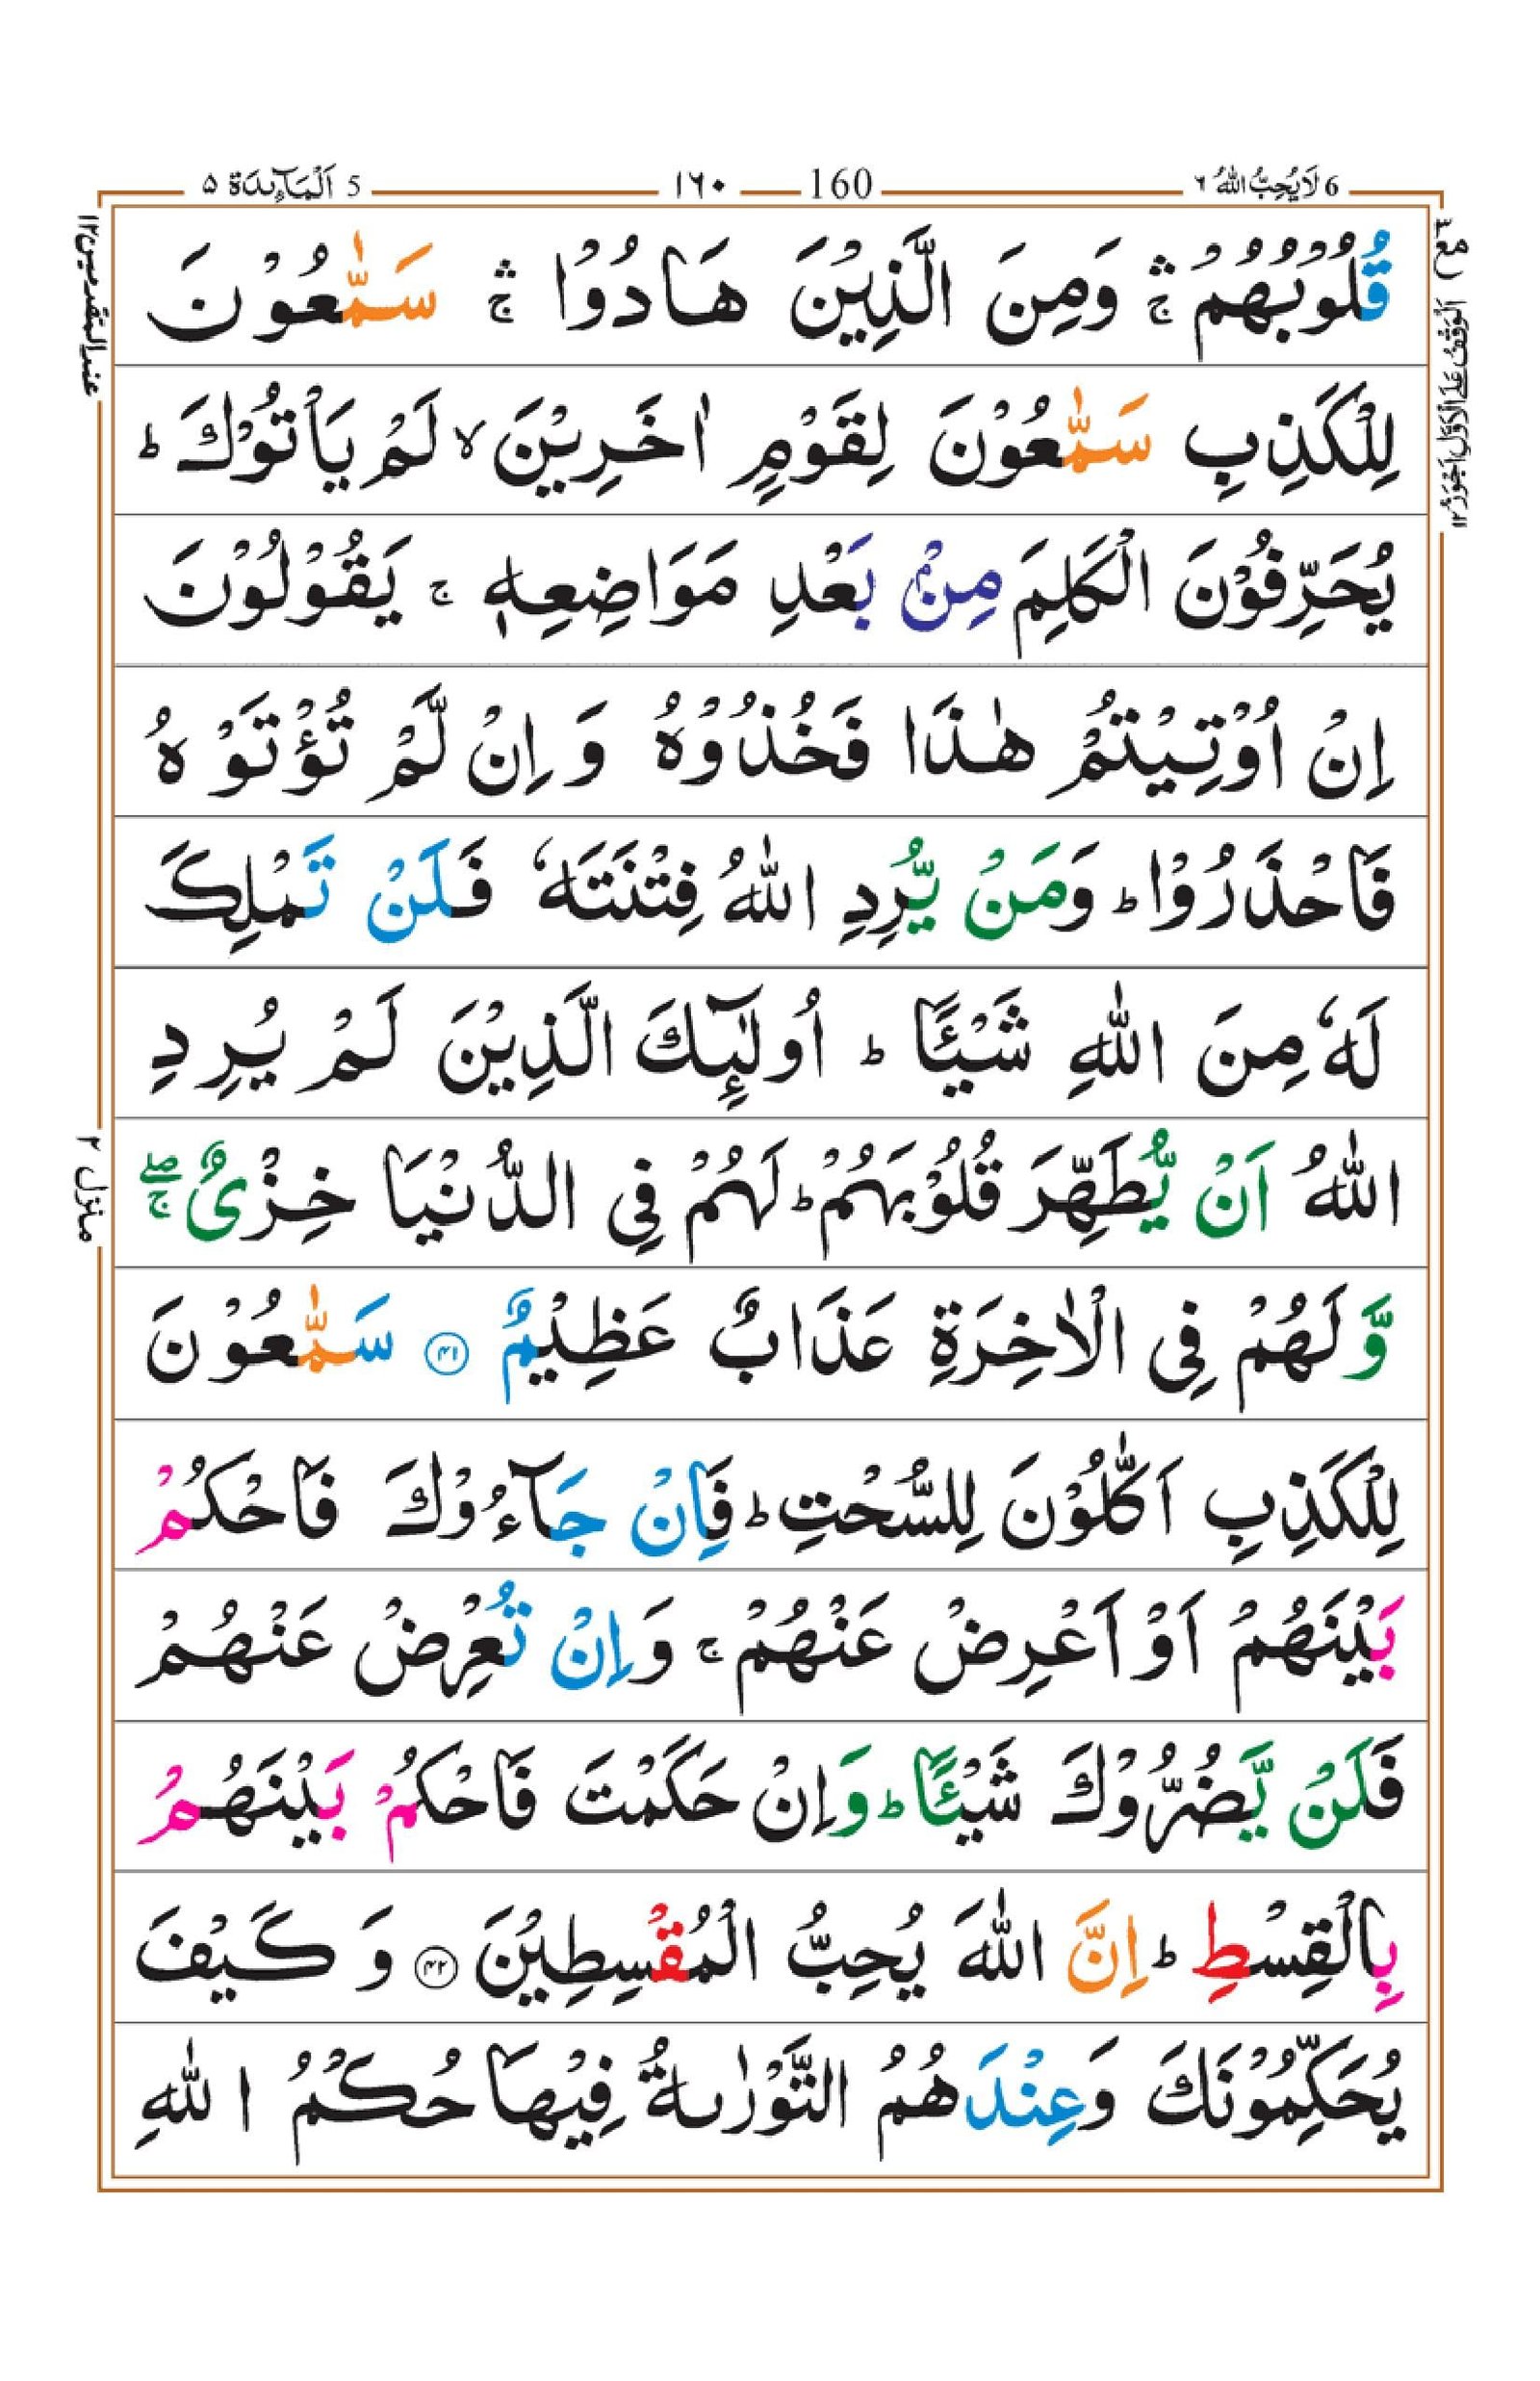 6 لَا يُحِبُّ اللّٰهُ ٦
160
١٦٠
5 اَلْمَآئِدَة ۵
قُلُوْبُهُمْ ۛۚ وَمِنَ الَّذِيْنَ هَادُوْا ۛۚ سَمّٰعُوْنَ
لِلْكَذِبِ سَمّٰعُوْنَ لِقَوْمٍ اٰخَرِيْنَ ۙ لَمْ يَاْتُوْكَ ؕ
يُحَرِّفُوْنَ الْكَلِمَ مِنْۢ بَعْدِ مَوَاضِعِهٖ ۚ يَقُوْلُوْنَ
اِنْ اُوْتِيْتُمْ هٰذَا فَخُذُوْهُ وَاِنْ لَّمْ تُؤْتَوْهُ
فَاحْذَرُوْا ؕ وَمَنْ يُّرِدِ اللّٰهُ فِتْنَتَهٗ فَلَنْ تَمْلِكَ
لَهٗ مِنَ اللّٰهِ شَيْـًٔا ؕ اُولٰٓئِكَ الَّذِيْنَ لَمْ يُرِدِ
اللّٰهُ اَنْ يُّطَهِّرَ قُلُوْبَهُمْ ؕ لَهُمْ فِى الدُّنْيَا خِزْىٌ ۖۚ
وَّلَهُمْ فِى الْاٰخِرَةِ عَذَابٌ عَظِيْمٌ ۴۱ سَمّٰعُوْنَ
لِلْكَذِبِ اَكّٰلُوْنَ لِلسُّحْتِ ؕ فَاِنْ جَآءُوْكَ فَاحْكُمْ
بَيْنَهُمْ اَوْ اَعْرِضْ عَنْهُمْ ۚ وَاِنْ تُعْرِضْ عَنْهُمْ
فَلَنْ يَّضُرُّوْكَ شَيْـًٔا ؕ وَاِنْ حَكَمْتَ فَاحْكُمْ بَيْنَهُمْ
بِالْقِسْطِ ؕ اِنَّ اللّٰهَ يُحِبُّ الْمُقْسِطِيْنَ ۴۲ وَكَيْفَ
يُحَكِّمُوْنَكَ وَعِنْدَهُمُ التَّوْرٰٮةُ فِيْهَا حُكْمُ اللّٰهِ
الْوَقْفُ عَلَى الْاَوَّلِ اَجْوَزُ ١٢
عند المتقدمين ١٢
منزل ٢